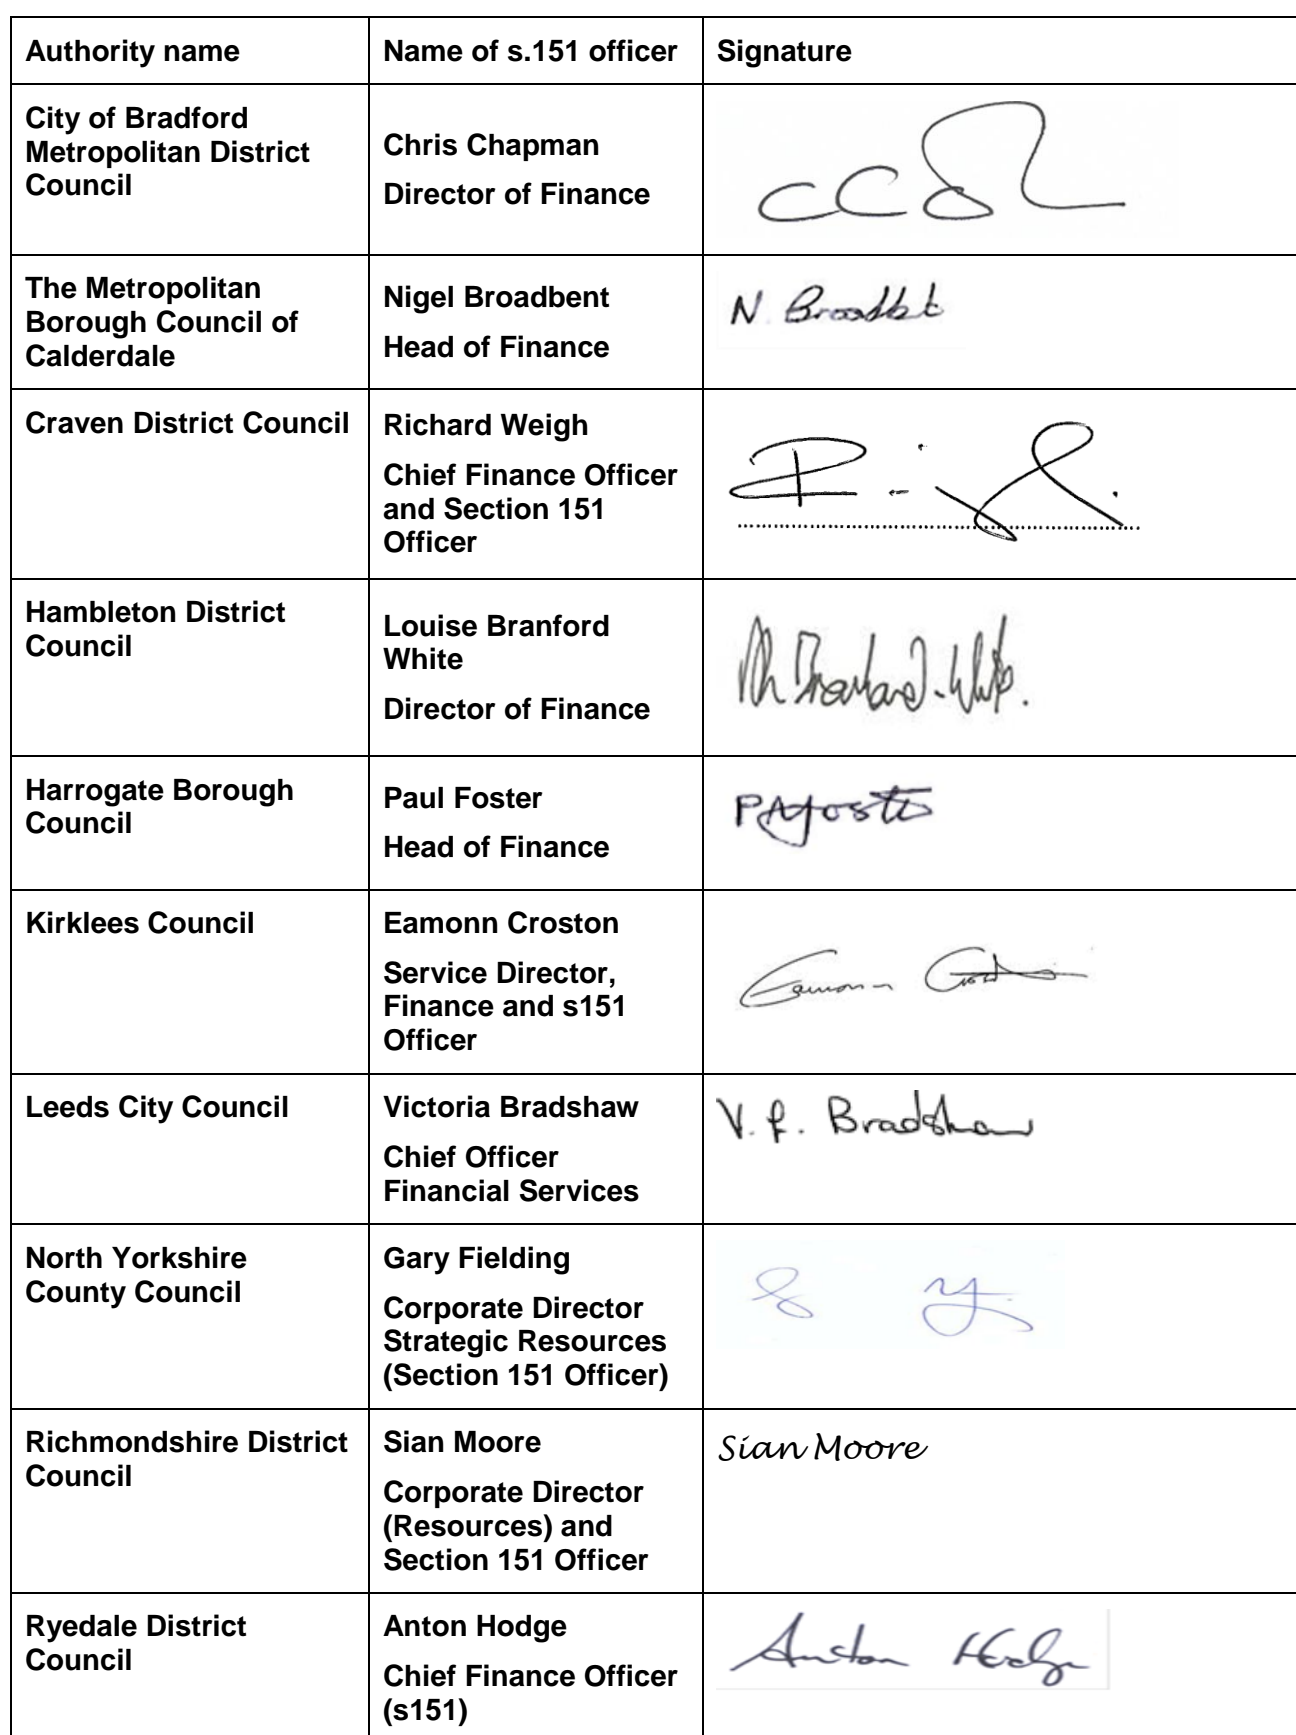 Authority name
Name of s.151 officer
Signature
City of Bradford
Metropolitan District
Council
Chris Chapman
Director of Finance
The Metropolitan
Borough Council of
Calderdale
Nigel Broadbent
Head of Finance
N. Broadbt
Craven District Council
Richard Weigh
Chief Finance Officer
and Section 151
Officer
Hambleton District
Council
Louise Branford
White
Director of Finance
Harrogate Borough
Council
Paul Foster
Head of Finance
PAFoster
Kirklees Council
Eamonn Croston
Service Director,
Finance and s151
Officer
Eamonn
Leeds City Council
Victoria Bradshaw
Chief Officer
Financial Services
V. Bradshaw
North Yorkshire
County Council
Gary Fielding
Corporate Director
Strategic Resources
(Section 151 Officer)
Richmondshire District
Council
Sian Moore
Corporate Director
(Resources) and
Section 151 Officer
Sian Moore
Ryedale District
Council
Anton Hodge
Chief Finance Officer
(s151)
Anton Hodge